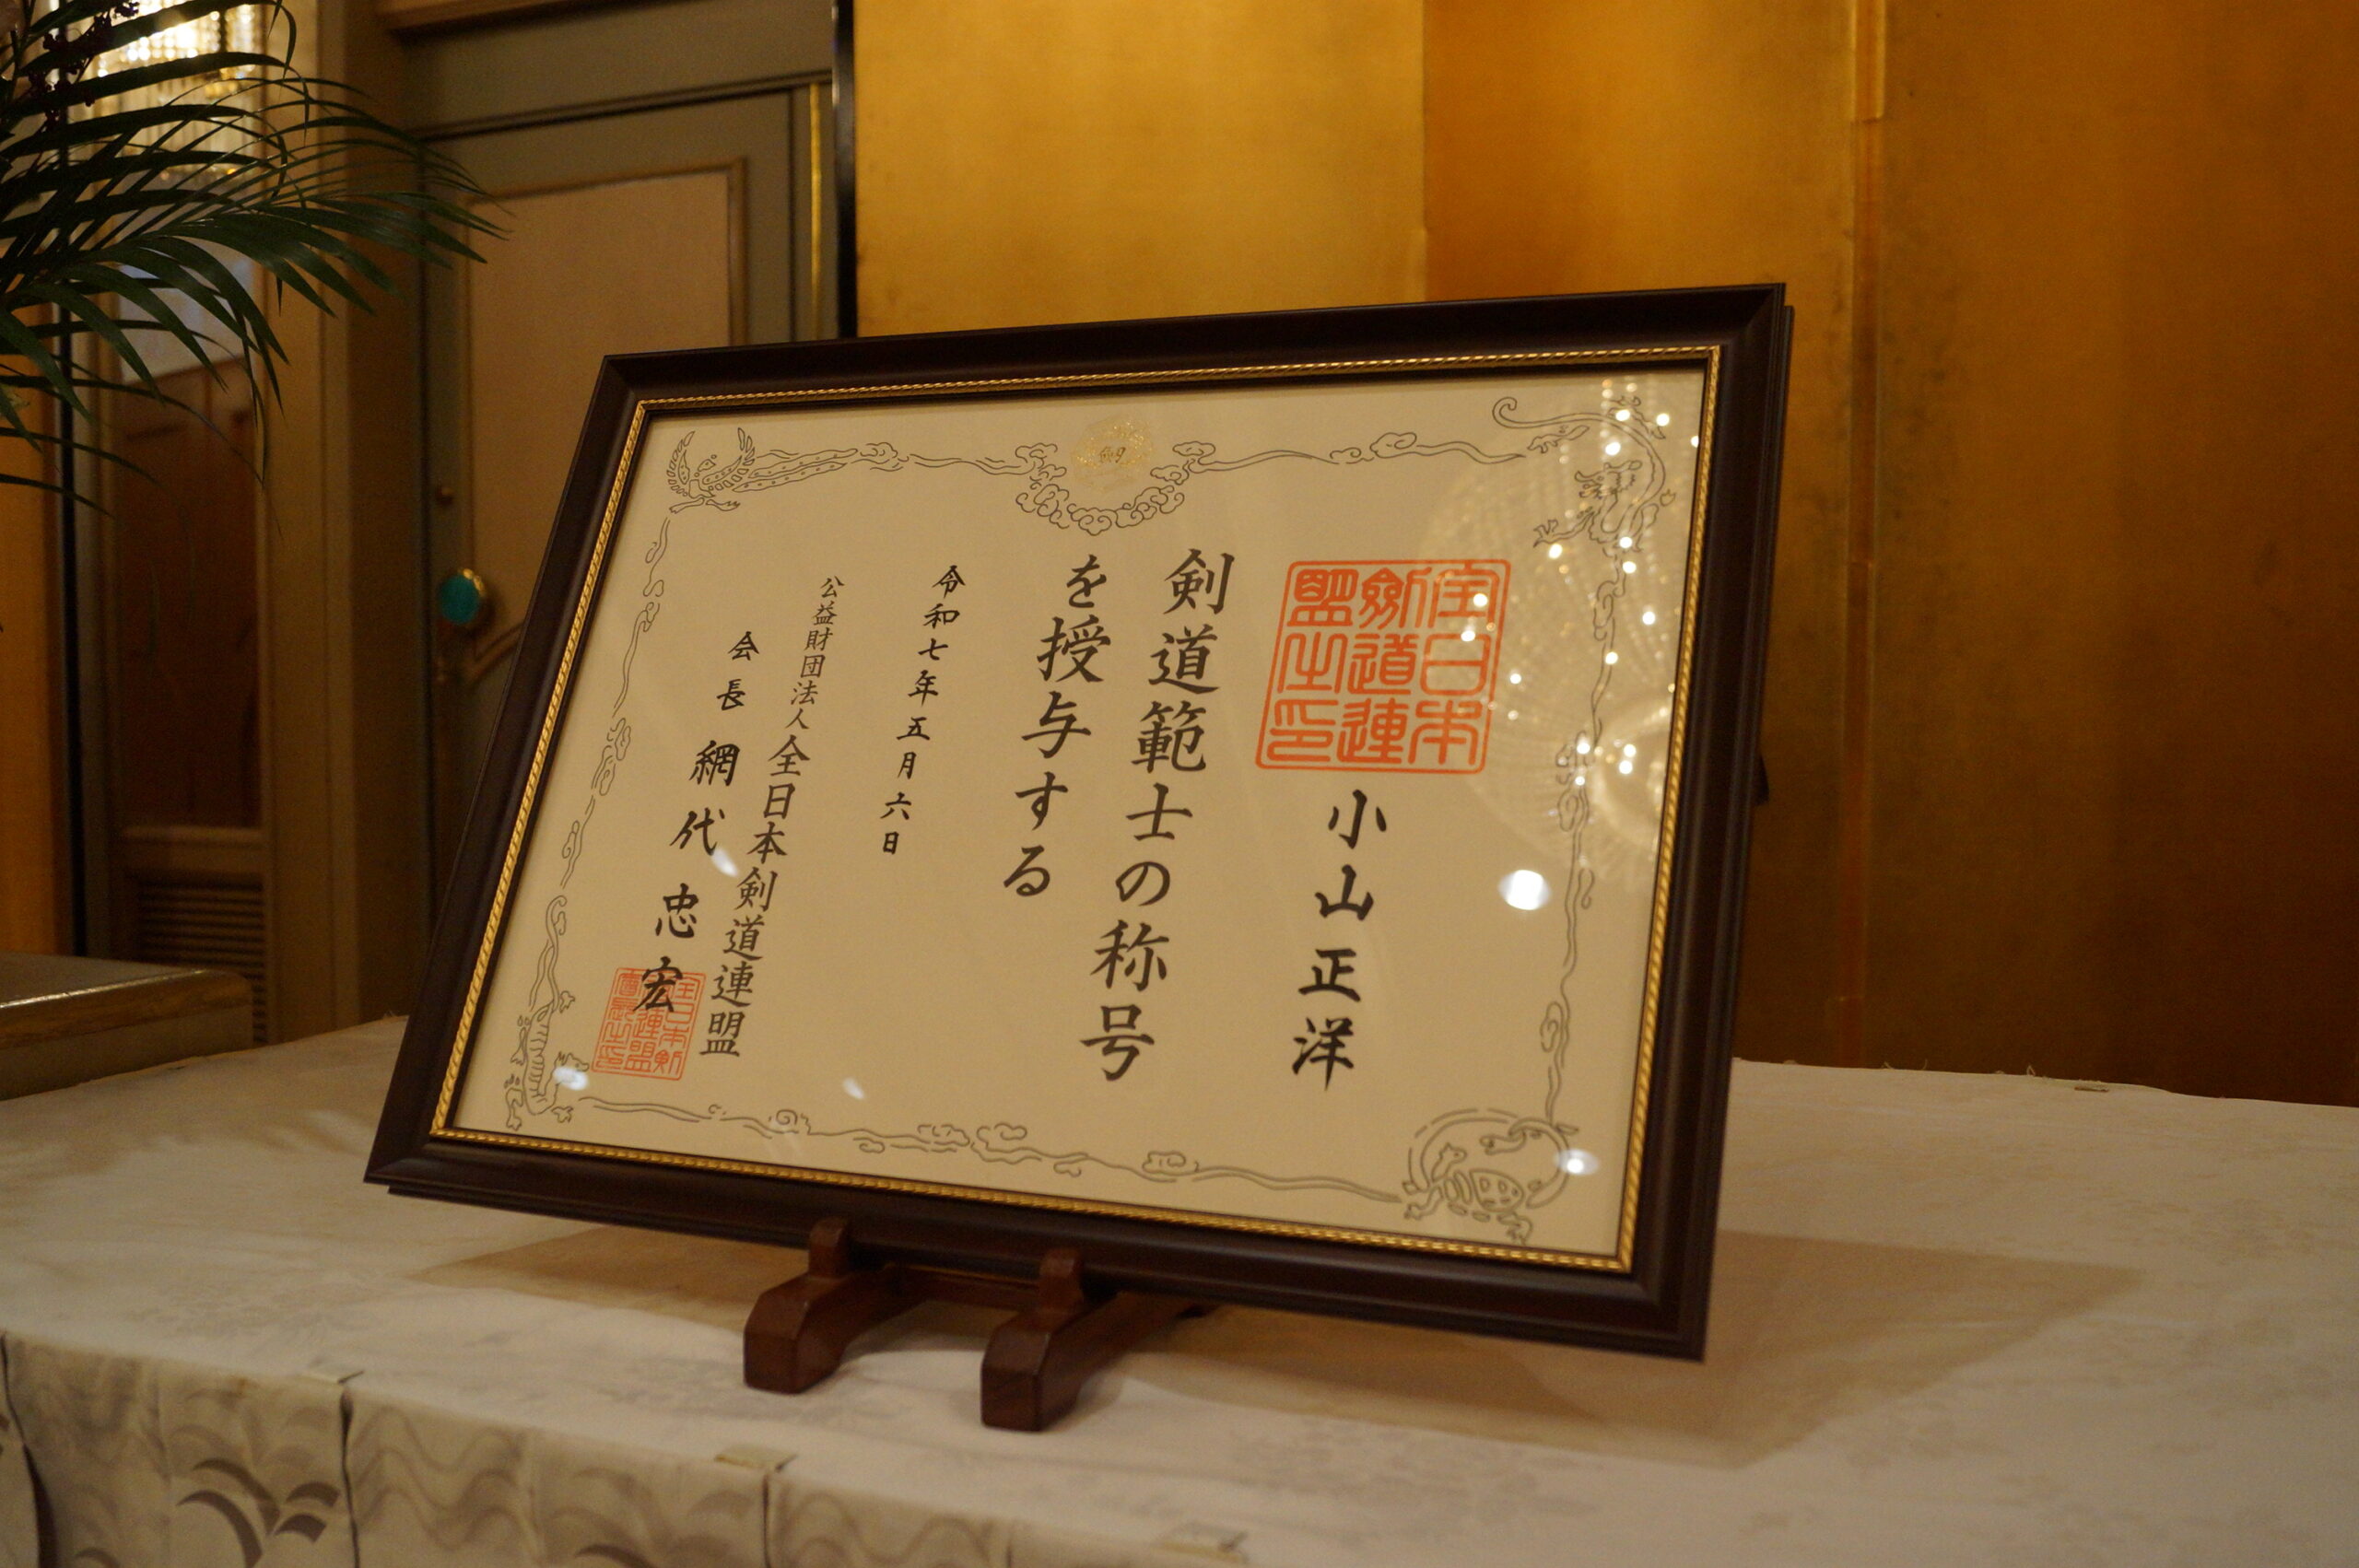 全日本
剣道連
盟之印
小山正洋
剣道範士の称号
を授与する
令和七年五月六日
公益財団法人全日本剣道連盟
会長 網代忠宏